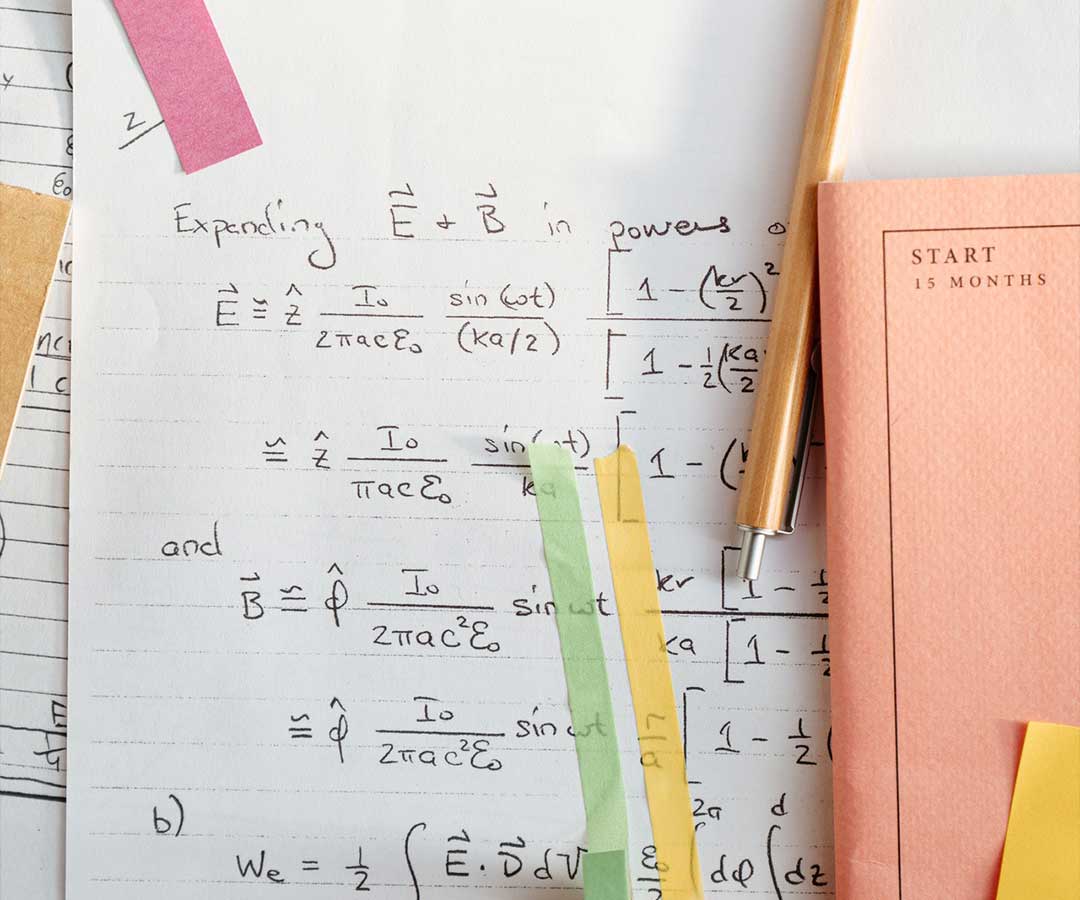 z
Expanding E⃗ + B⃗ in powers
E⃗ ≅ ẑ I₀/2πacε₀ sin(ωt)/(ka/2) [1 − (kr/2)²/[1 − ½(ka/2
≅ ẑ I₀/πacε₀ sin(ωt)/ka [1 − (
and
B⃗ ≅ φ̂ I₀/2πac²ε₀ sin ωt kr [1 − ½/ka [1 − ½
≅ φ̂ I₀/2πac²ε₀ sin ωt r/a [1 − ½ (
b)
We = ½ ∫ E⃗ · D⃗ dV ε₀/2 ∫ 2π dφ ∫ d dz
START
15 MONTHS